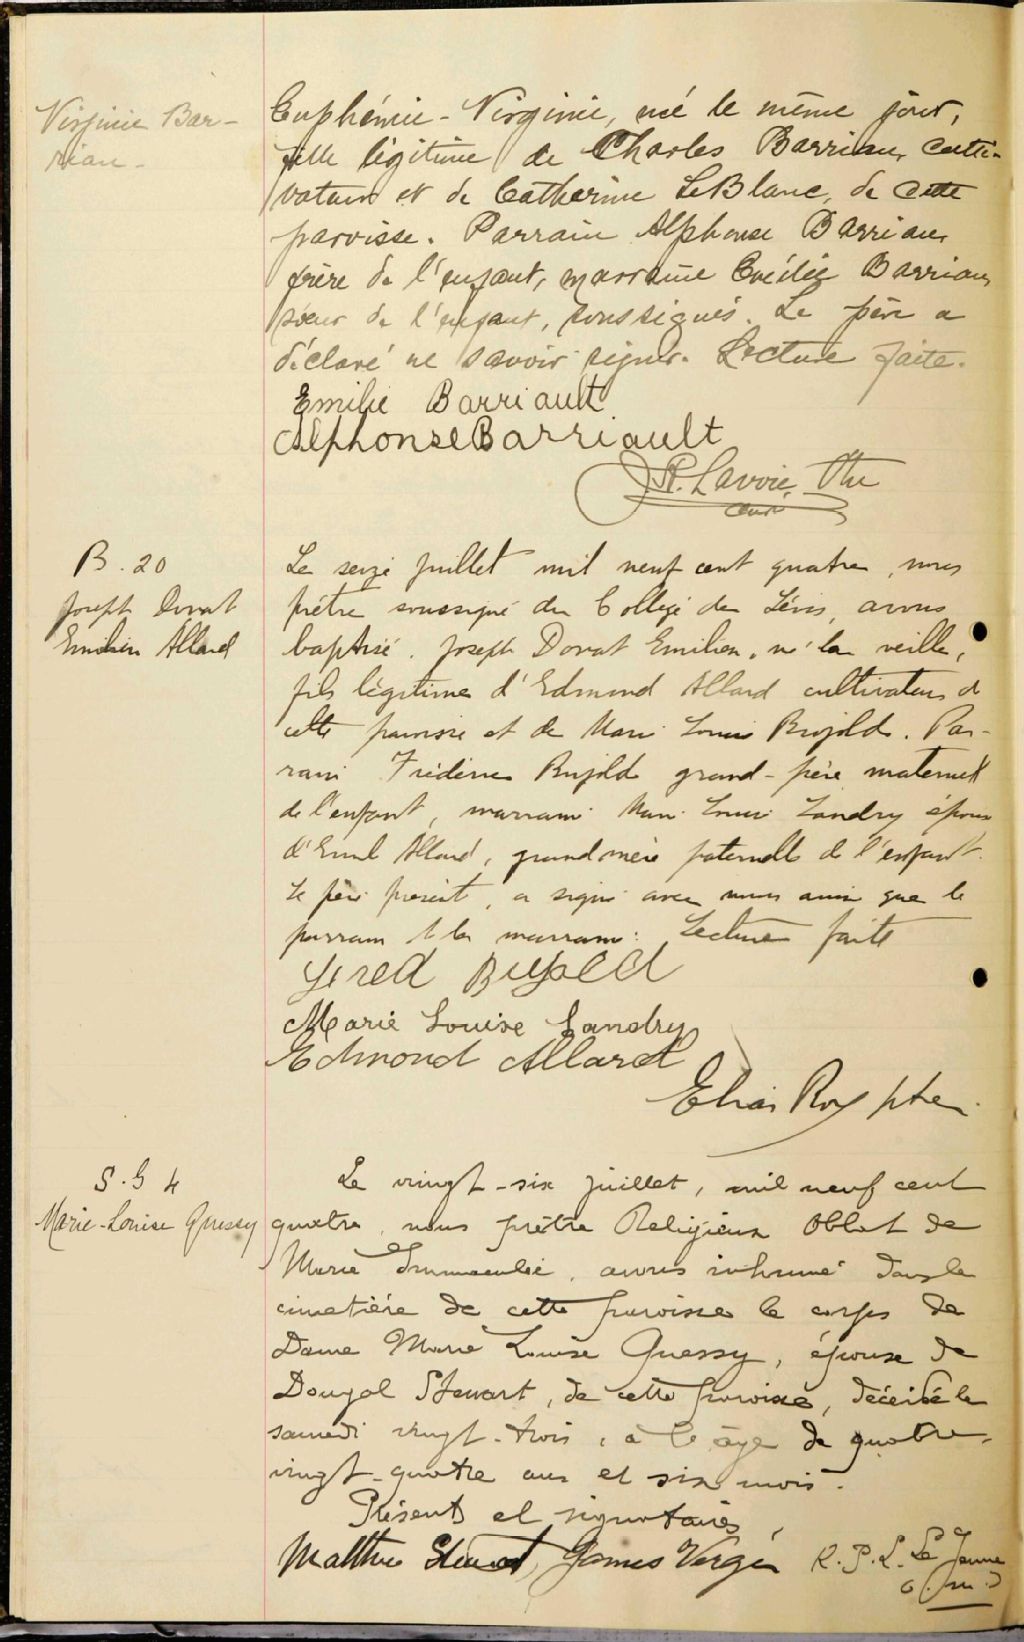 Virginie Bar-
rian-
Euphémie-Virginie, né le même jour,
fille légitime de Charles Barriau, culti-
vateur et de Catherine LeBlanc, de cette
paroisse. Parrain Alphonse Barriau,
frère de l'enfant, marraine Emélie Barriau
sœur de l'enfant, soussignés. Le père a
déclaré ne savoir signer. Lecture faite.
Emilie Barriault
Alphonse Barriault
Lavoie, Ptre
Curé
B. 20
Joseph Donat
Emilien Allard
Le seize juillet mil neuf cent quatre, nous
prêtre soussigné du Collège de Lévis, avons
baptisé Joseph Donat Emilien, né la veille,
fils légitime d'Edmond Allard cultivateur de
cette paroisse et de Marie Louise Bujold. Par-
rain Bujold grand-père maternel
de l'enfant, marraine Marie Louise Landry épouse
d' Allard, grand mère paternelle de l'enfant.
Le père présent, a signé avec nous ainsi que le
parrain et la marraine. Lecture faite
Fred Bujold
Marie Louise Landry
Edmond Allard
Elias Roy ptre.
S. G 4
Marie-Louise Guessy
Le vingt-six juillet, mil neuf cent
quatre, nous prêtre Religieux Oblat de
Marie Immaculée, avons inhumé dans le
cimetière de cette paroisse le corps de
Dame Marie Louise Guessy, épouse de
Dougal Stewart, de cette paroisse, décédé le
samedi vingt-trois, à l'âge de quatre-
vingt-quatre ans et six mois.
Présents et signataires,
Matthew Stewart, James Vergé, R. P. L. Le Jeune
o. m. i